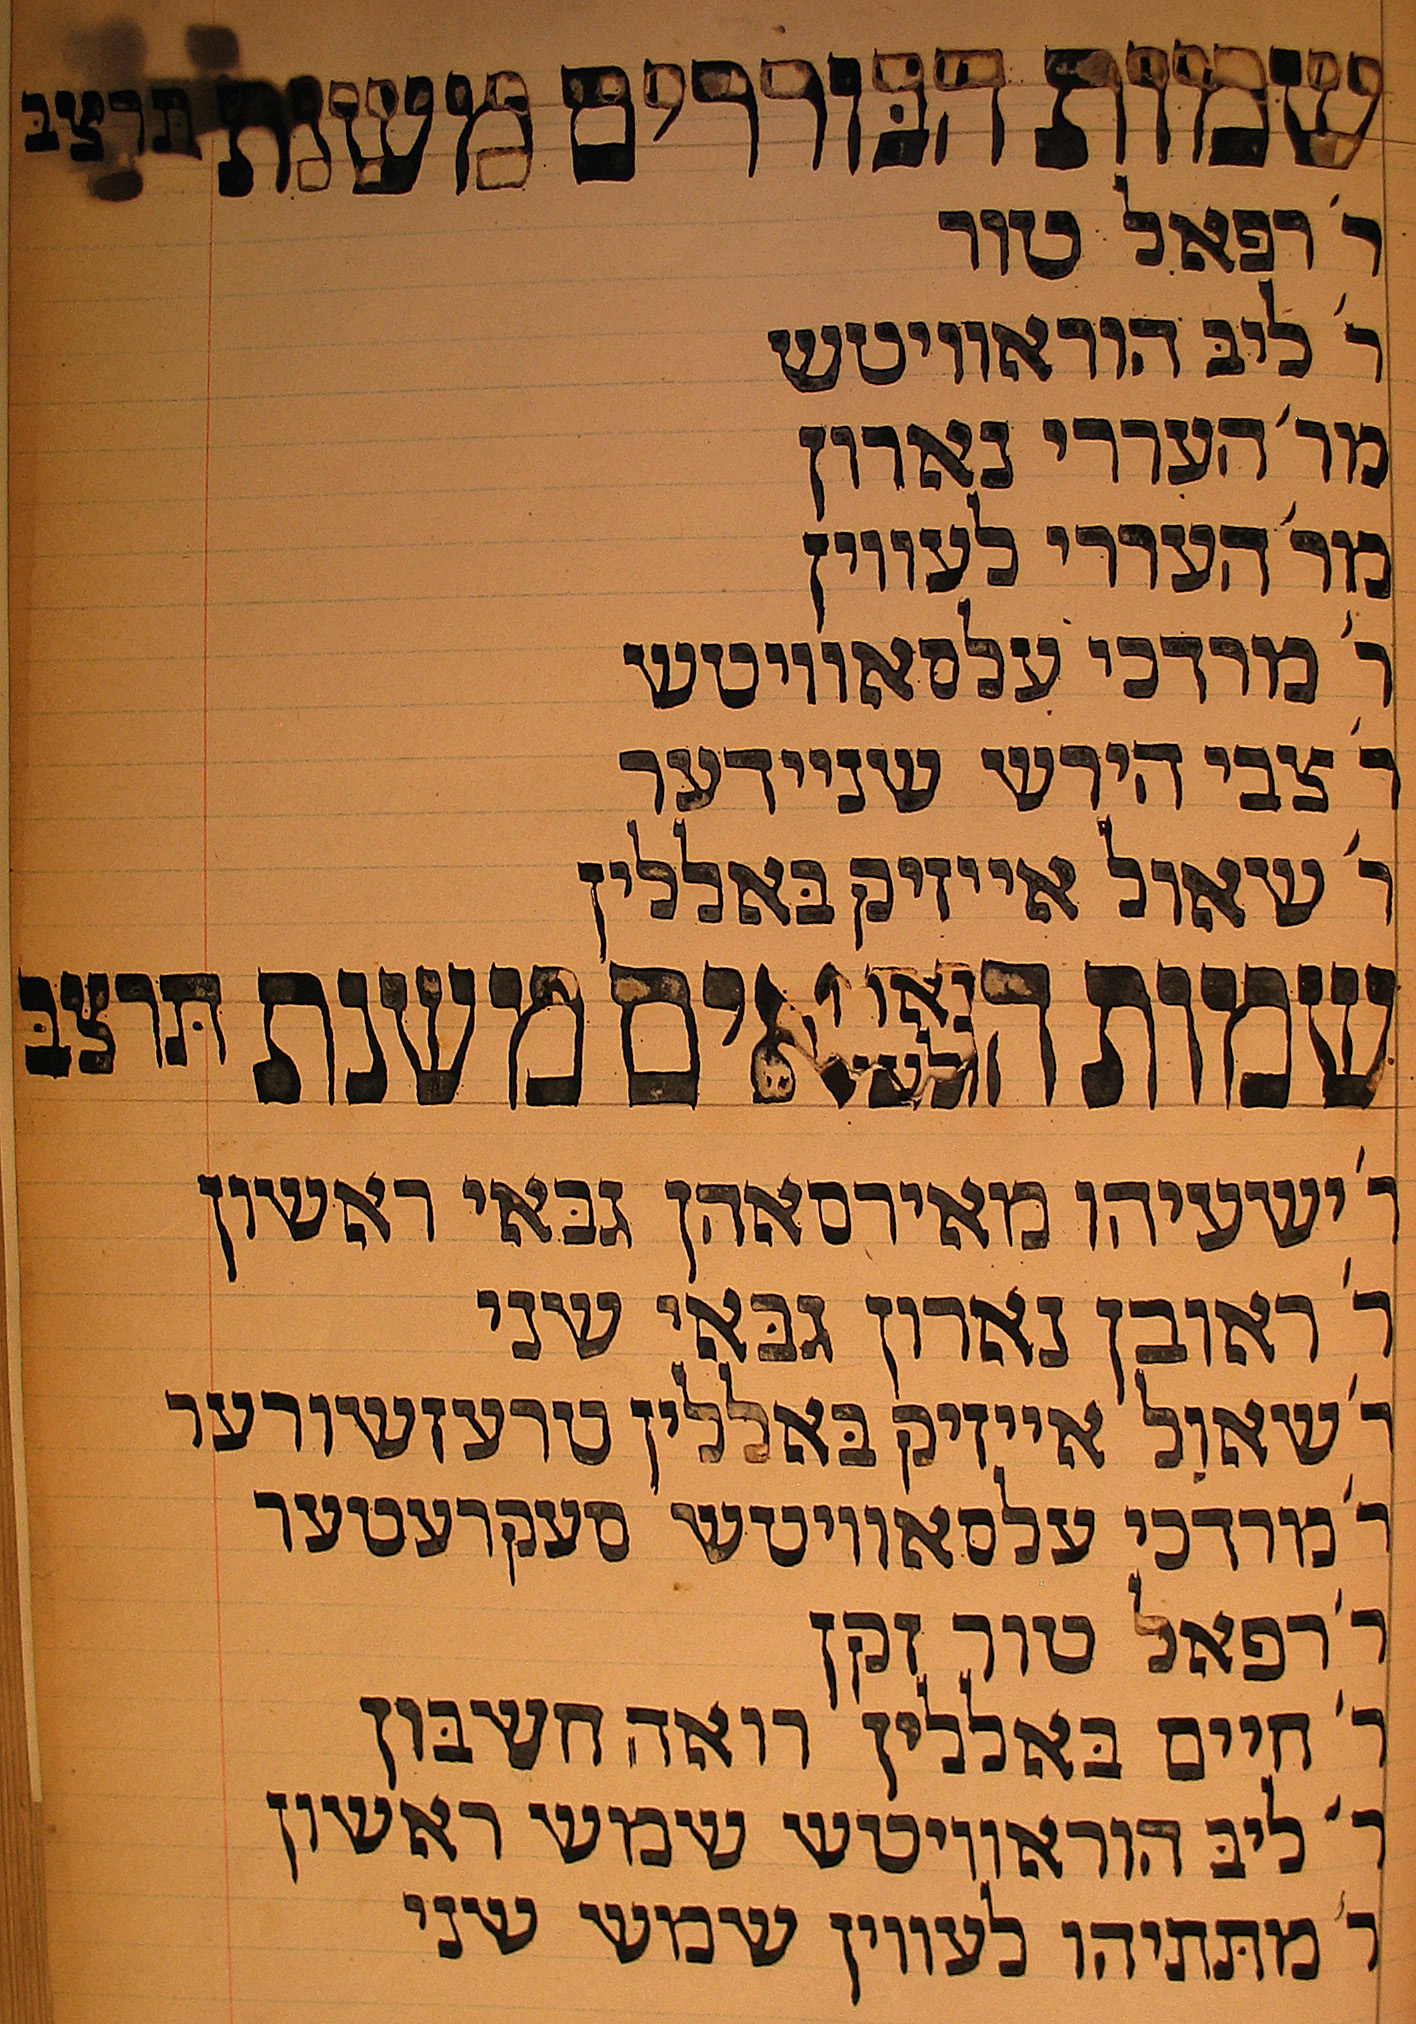 שמות הבוררים משנת תרצב
ר' רפאל טור
ר' ליב הוראוויטש
מר' העררי נארון
מר' העררי לעווין
ר' מרדכי עלסאוויטש
ר' צבי הירש שניידער
ר' שאול אייזיק באללין
שמות הגבאים משנת תרצב
ר' ישעיהו מאירסאהן גבאי ראשון
ר' ראובן נארון גבאי שני
ר' שאול אייזיק באללין טרעזשורער
ר' מרדכי עלסאוויטש סעקרעטער
ר' רפאל טור זקן
ר' חיים באללין רואה חשבון
ר' ליב הוראוויטש שמש ראשון
ר' מתתיהו לעווין שמש שני